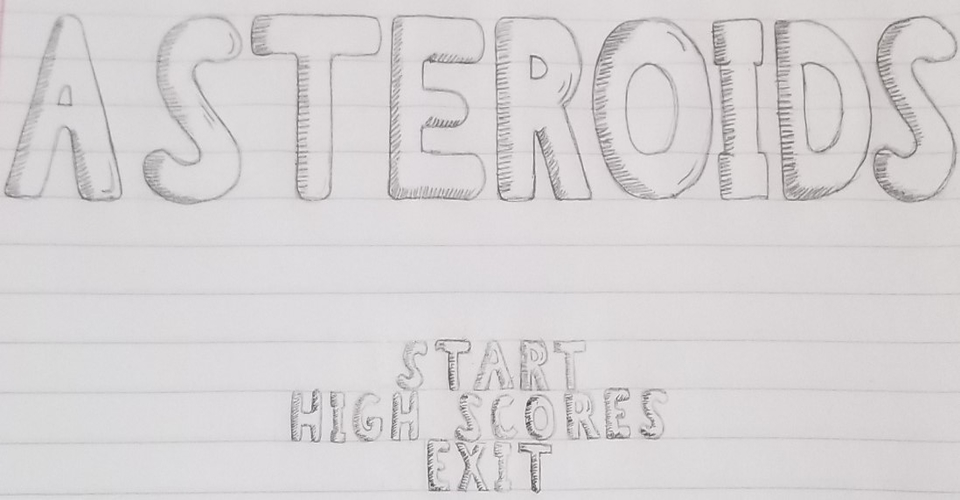 ASTEROIDS
START
HIGH SCORES
EXIT